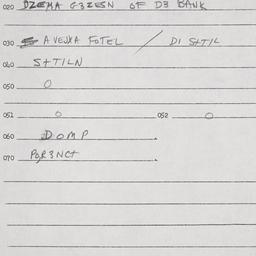 020 DZEMA G3ZESN OF D3 BANK
030 A VEJXA FOTEL / DI STTIL
040 STTILN
050 O
051 O 052 O
060 DOMP
070 P3R3NCT